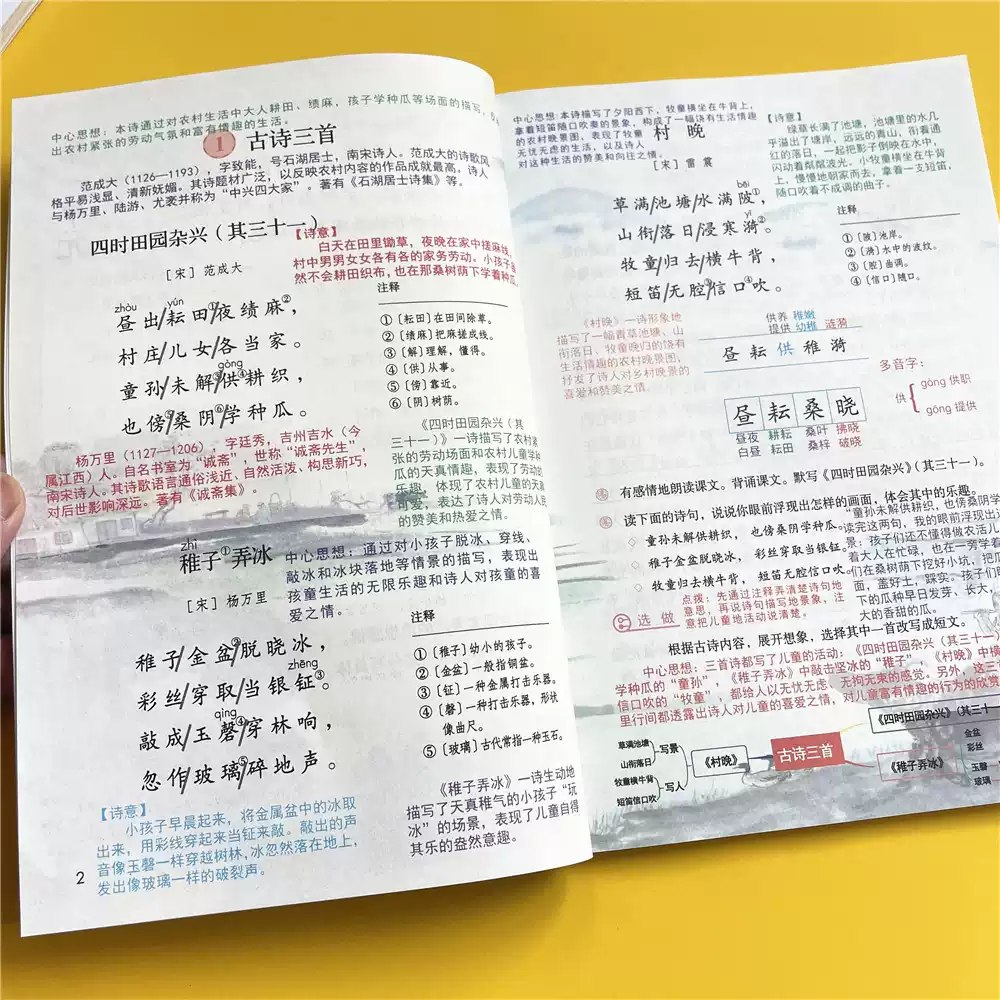 中心思想：本诗通过对农村生活中大人耕田、绩麻，孩子学种瓜等场面的描写，
出农村紧张的劳动气氛和富有情趣的生活。
1 古诗三首
范成大（1126—1193），字致能，号石湖居士，南宋诗人。范成大的诗歌风
格平易浅显、清新妩媚。其诗题材广泛，以反映农村内容的作品成就最高，诗人
与杨万里、陆游、尤袤并称为“中兴四大家”。著有《石湖居士诗集》等。
四时田园杂兴（其三十一）
［宋］范成大
【诗意】
白天在田里锄草，夜晚在家中搓麻线，
村中男男女女各有各的家务劳动。小孩子虽
然不会耕田织布，也在那桑树荫下学着种瓜
zhòu yún
昼出/耘田①/夜绩麻②，
村庄/儿女/各当家。
gòng
童孙/未解③/供④耕织，
也傍⑤/桑阴⑥/学种瓜。
注释
①〔耘田〕在田间除草。
②〔绩麻〕把麻搓成线。
③〔解〕理解，懂得。
④〔供〕从事。
⑤〔傍〕靠近。
⑥〔阴〕树荫。
杨万里（1127—1206），字廷秀，吉州吉水（今
属江西）人。自名书室为“诚斋”，世称“诚斋先生”，
南宋诗人。其诗歌语言通俗浅近、自然活泼、构思新巧，
对后世影响深远。著有《诚斋集》。
《四时田园杂兴（其
三十一）》一诗描写了农村紧
张的劳动场面和农村儿童学种
瓜的天真情趣，表现了劳动的
乐趣，体现了农村儿童的天真
可爱，表达了诗人对劳动人民
的赞美和热爱之情。
zhì
稚子①弄冰
［宋］杨万里
中心思想：通过对小孩子脱冰、穿线、
敲冰和冰块落地等情景的描写，表现出
孩童生活的无限乐趣和诗人对孩童的喜
爱之情。
稚子/金盆②/脱晓冰，
zhēng
彩丝/穿取/当银钲③。
qìng
敲成/玉磬④/穿林响，
忽作/玻璃⑤/碎地声。
注释
①〔稚子〕幼小的孩子。
②〔金盆〕一般指铜盆。
③〔钲〕一种金属打击乐器。
④〔磬〕一种打击乐器，形状
像曲尺。
⑤〔玻璃〕古代常指一种玉石。
【诗意】
小孩子早晨起来，将金属盆中的冰取
出来，用彩线穿起来当钲来敲。敲出的声
音像玉磬一样穿越树林，冰忽然落在地上，
发出像玻璃一样的破裂声。
《稚子弄冰》一诗生动地
描写了天真稚气的小孩子“玩
冰”的场景，表现了儿童自得
其乐的盎然意趣。
2
中心思想：本诗描写了夕阳西下，牧童横坐在牛背上，
拿着短笛随口吹奏的景象，构成了一幅饶有生活情趣
的农村晚景图，表现了牧童
无忧无虑的生活，以及诗人
对这种生活的赞美和向往之情。
村晚
［宋］雷震
【诗意】
绿草长满了池塘，池塘里的水几
乎溢出了塘岸，远远的青山，衔着通
红的落日，一起把影子倒映在水中，
闪动着粼粼波光。小牧童横坐在牛背
上，慢慢地朝家而去，拿着一支短笛，
随口吹着不成调的曲子。
bēi
草满/池塘/水满陂①，
yī
山衔/落日/浸寒漪②。
牧童/归去/横牛背，
短笛/无腔③/信口④吹。
注释
①〔陂〕池岸。
②〔漪〕水中的波纹。
③〔腔〕曲调。
④〔信口〕随口。
《村晚》一诗形象地
描写了一幅青草池塘、山
衔落日、牧童晚归的饶有
生活情趣的农村晚景图，
抒发了诗人对乡村晚景的
喜爱和赞美之情。
供养 稚嫩
提供 幼稚 涟漪
昼 耘 供 稚 漪
多音字：
供 gòng 供职
gōng 提供
昼 耘 桑 晓
昼夜 耕耘 桑叶 拂晓
白昼 耘田 桑梓 破晓
有感情地朗读课文。背诵课文。默写《四时田园杂兴》（其三十一）。
读下面的诗句，说说你眼前浮现出怎样的画面，体会其中的乐趣。
◇ 童孙未解供耕织，也傍桑阴学种瓜。
◇ 稚子金盆脱晓冰，彩丝穿取当银钲。
◇ 牧童归去横牛背，短笛无腔信口吹。
“童孙未解供耕织，也傍桑阴学
读完这两句，我的眼前浮现出
景：孩子们还不懂得做农活儿
着大人在忙碌，也在一旁学着
们在桑树荫下挖好小坑，把瓜
面，盖好土，踩实。孩子们
下的瓜种早日发芽、长大，
大的香甜的瓜。
点拨：先通过注释弄清楚诗句地
意思，再说诗句描写地景象，注
意把儿童地活动说清楚。
选做
根据古诗内容，展开想象，选择其中一首改写成短文。
中心思想：三首诗都写了儿童的活动：《四时田园杂兴（其三十一）
学种瓜的“童孙”，《稚子弄冰》中敲击坚冰的“稚子”，《村晚》中横
信口吹的“牧童”，都给人以无忧无虑、无拘无束的感觉。另外，这三
里行间都透露出诗人对儿童的喜爱之情，对儿童富有情趣的行为的欣赏
草满池塘
山衔落日
写景
牧童横牛背
短笛信口吹
写人
《村晚》
古诗三首
《四时田园杂兴》（其三十一
《稚子弄冰》
金盆
彩丝
玉磬
玻璃